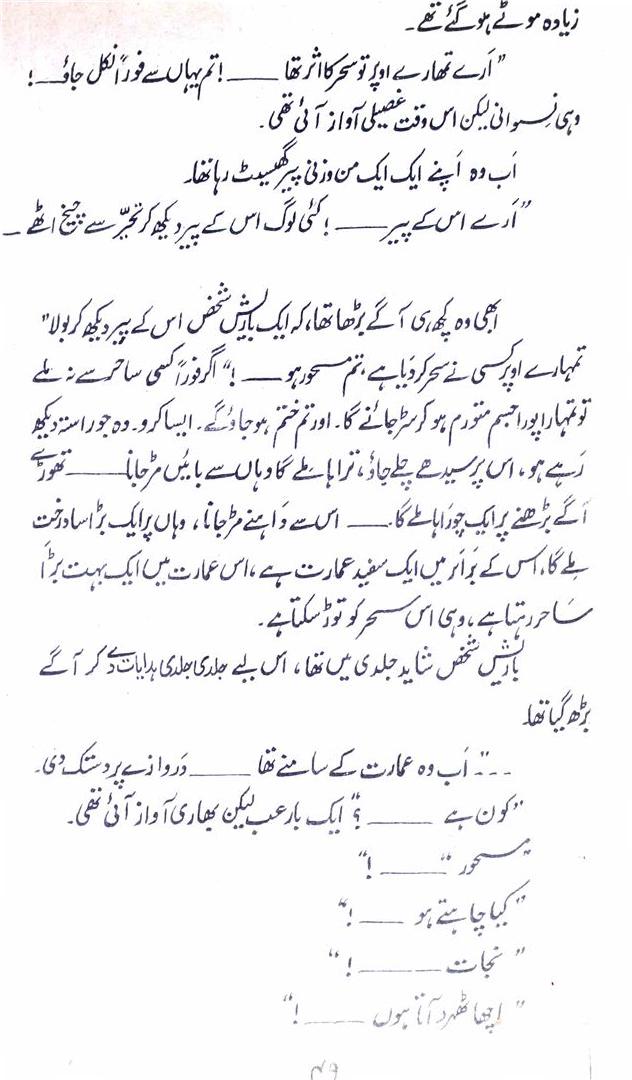 زیادہ موٹے ہو گئے تھے۔
”اَرے تمھارے اوپر تو سحر کا اثر تھا ——! تم یہاں سے فوراً نکل جاؤ——!
وہی نِسوانی لیکن اس وقت غصیلی آواز آئی تھی۔
اَب وہ اَپنے ایک ایک من وزنی پیر گھسیٹ رہا تھا۔
”اَرے اس کے پیر——! کئی لوگ اس کے پیر دیکھ کر تحیّر سے چیخ اٹھے۔
ابھی وہ کچھ ہی آگے بڑھا تھا، کہ ایک باریش شخص اس کے پیر دیکھ کر بولا”
تمہارے اوپر کسی نے سحر کر دَیا ہے، تم مسحور ہو——!“ اگر فوراً کسی ساحر سے نہ ملے
تو تمہارا پورا جسم متورم ہو کر سڑ جائے گا۔ اور تم ختم ہو جاؤ گے۔ ایسا کرو۔ وہ جو راستہ دیکھ
رَہے ہو، اس پر سیدھے چلے جاؤ، ترا ہا ملے گا وہاں سے بائیں مڑ جانا—— تھوڑے
آگے بڑھنے پر ایک چورَاہا ملے گا۔—— اس سے دَاہنے مڑ جانا، وہاں پر ایک بڑا سا درخت
ملے گا، اس کے بَراَبر میں ایک سفید عمارت ہے، اس عمارت میں ایک بہت بڑاَ
سَاحر رہتا ہے، وہی اس سحر کو توڑ سکتا ہے۔
باریش شخص شاید جلدی میں تھا، اس لیے جلدی جلدی ہدایات دے کر آگے
بڑھ گیا تھا۔
۔۔۔“ اَب وہ عمارت کے سامنے تھا —— دَروازے پر دستک دی۔
”کون ہے ——؟“ ایک بارعب لیکن بھاری آواز آئی تھی۔
”مسحور“——!“
”کیا چاہتے ہو ——!“
”نجات ——!“
”اچھا ٹھہرو آتا ہوں ——!“